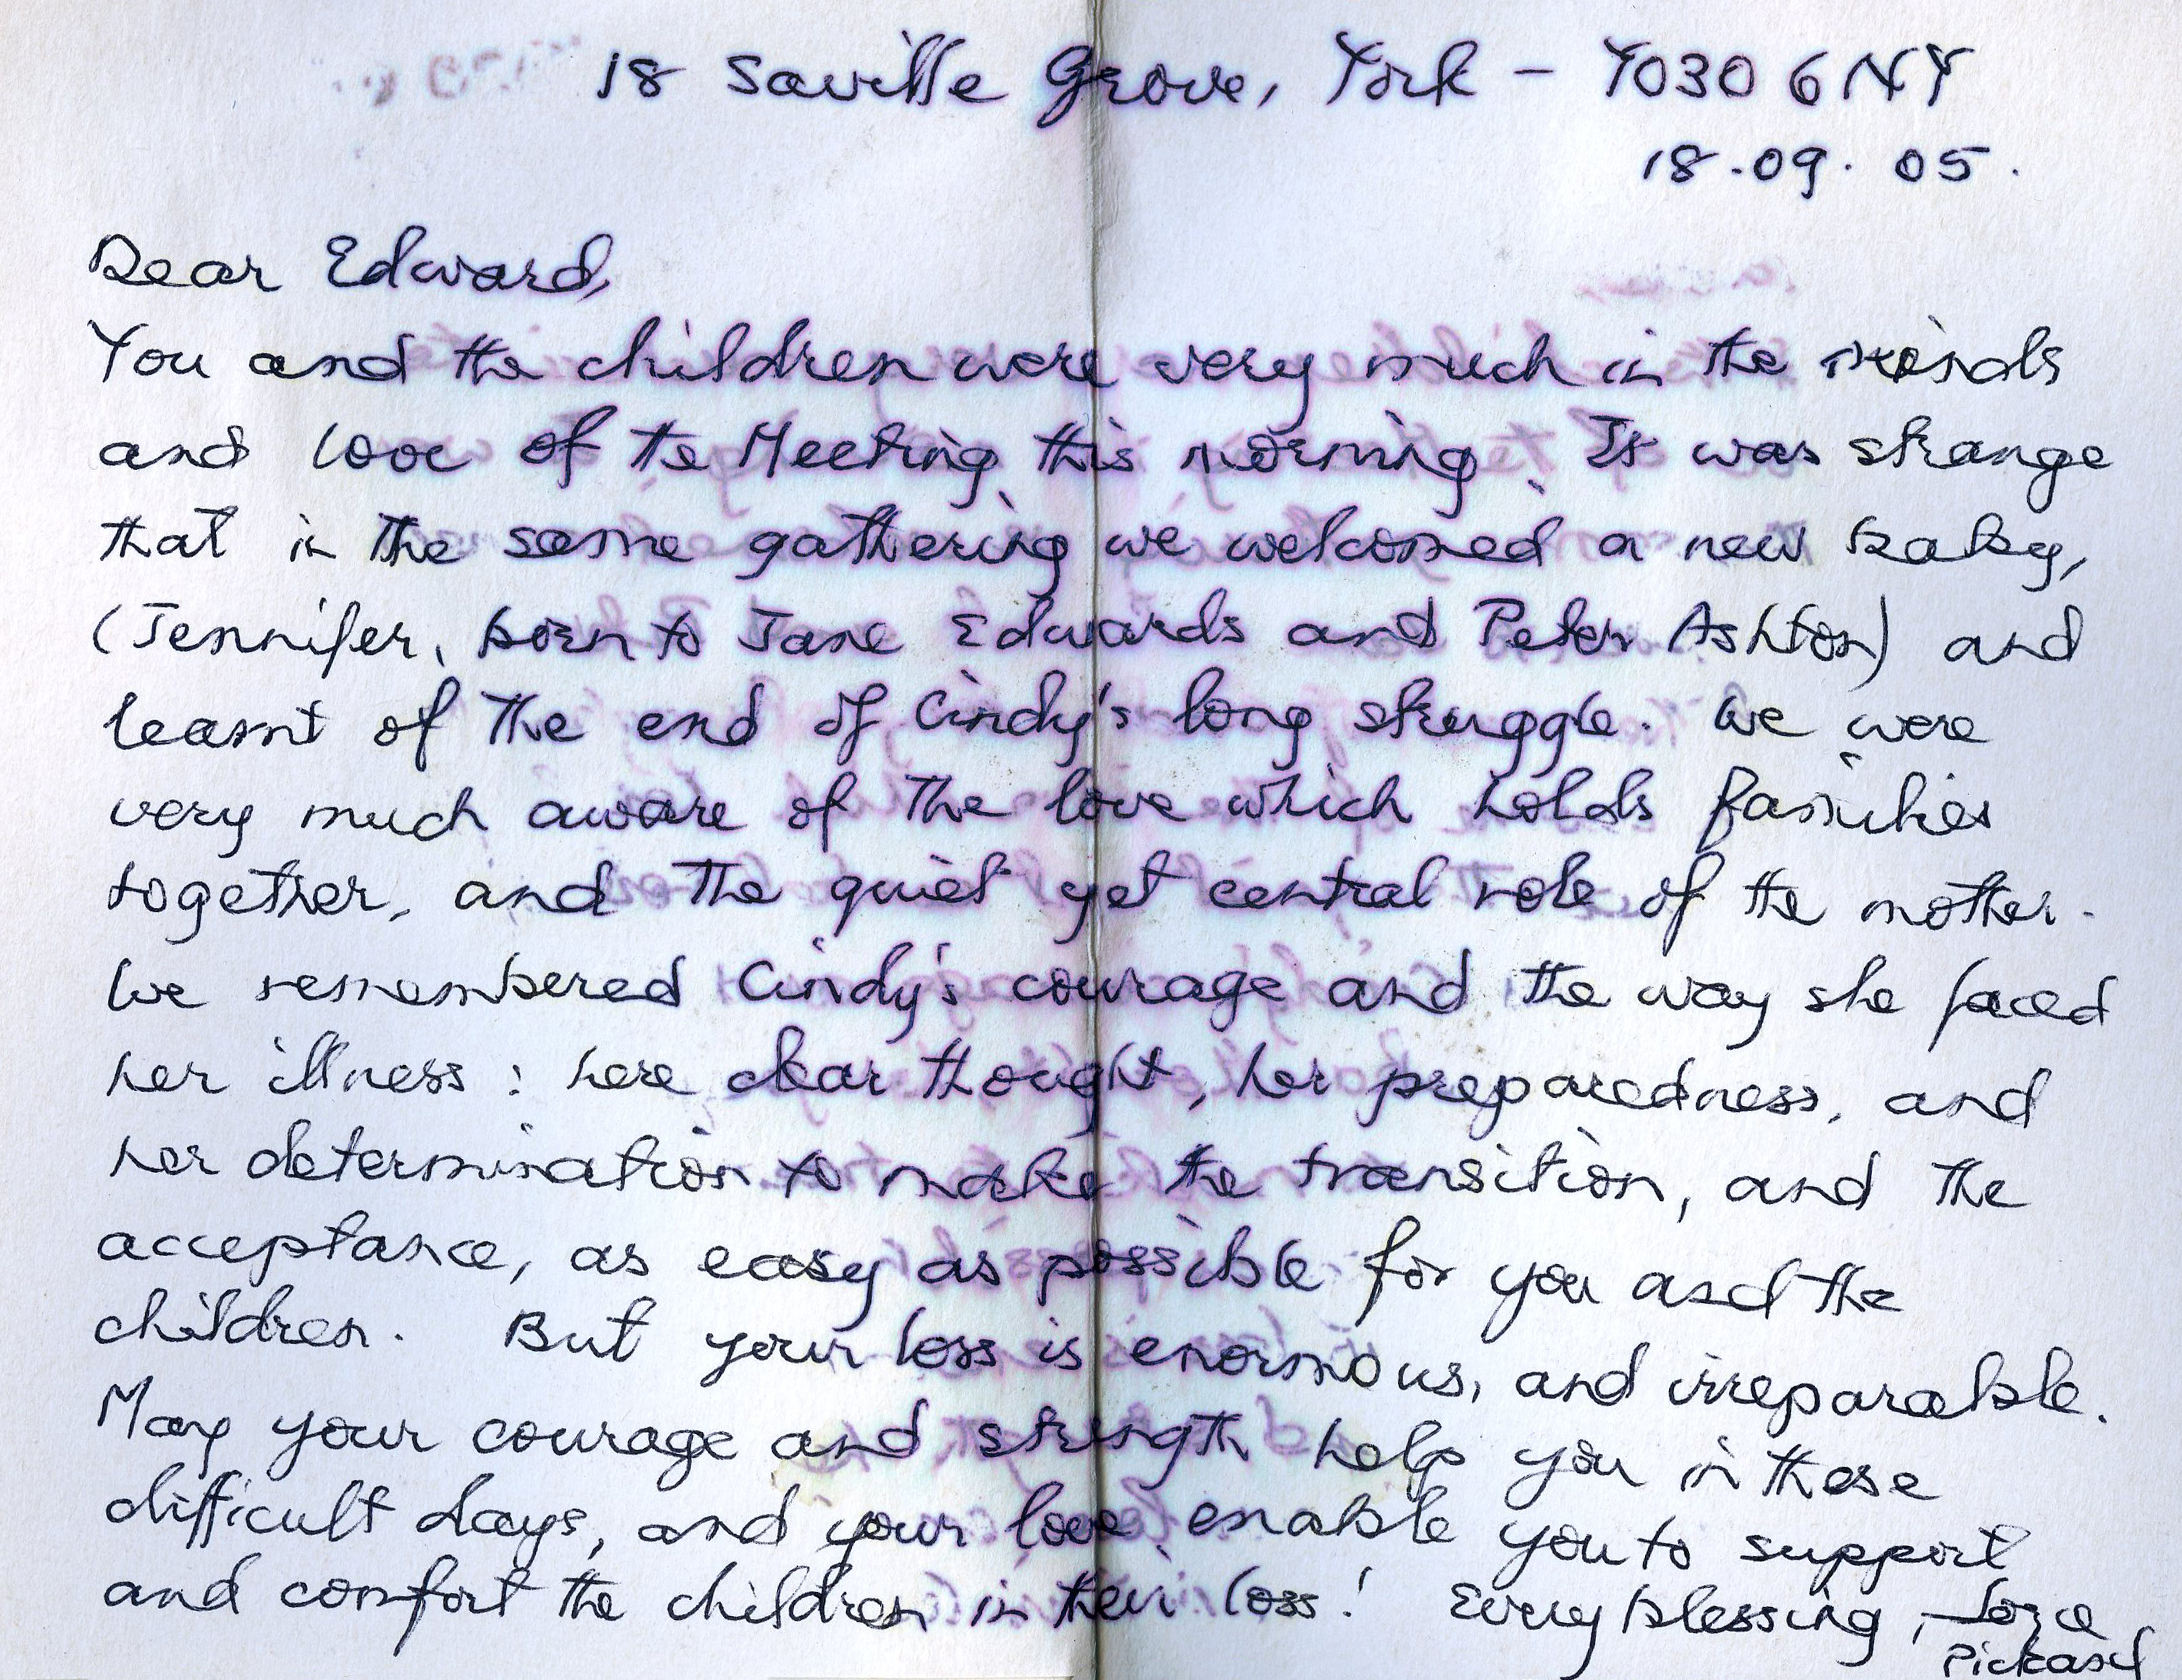 18 Saville Grove, York - YO30 6NY
18.09.05.
Dear Edward,
You and the children were very much in the minds
and love of the Meeting this morning. It was strange
that in the same gathering we welcomed a new baby,
(Jennifer, born to Jane Edwards and Peter Ashton) and
learnt of the end of Cindy's long struggle. We were
very much aware of the love which holds families
together, and the quiet yet central role of the mother.
We remembered Cindy's courage and the way she faced
her illness: here clear thought, her preparedness, and
her determination to make the transition, and the
acceptance, as easy as possible for you and the
children. But your loss is enormous, and irreparable.
May your courage and strength help you in these
difficult days, and your love enable you to support
and comfort the children in their loss! Every blessing,